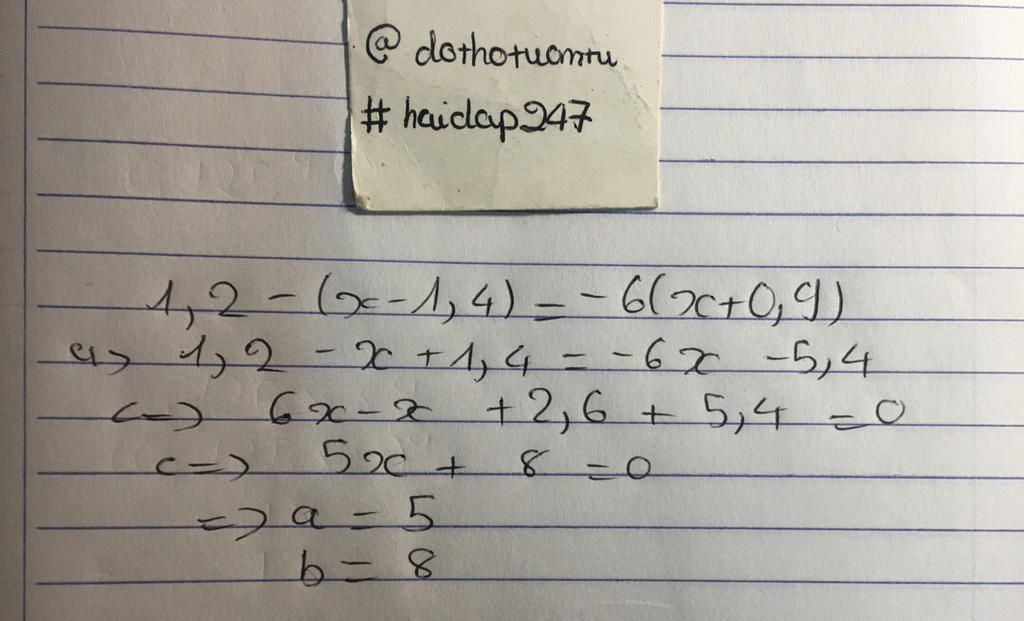 @ dothotuomtu
# hoidap247
1,2 - (x - 1,4) = -6(x+0,9)
<=> 1,2 - x + 1,4 = -6x - 5,4
<=> 6x - x + 2,6 + 5,4 = 0
<=> 5x + 8 = 0
=> a = 5
b = 8